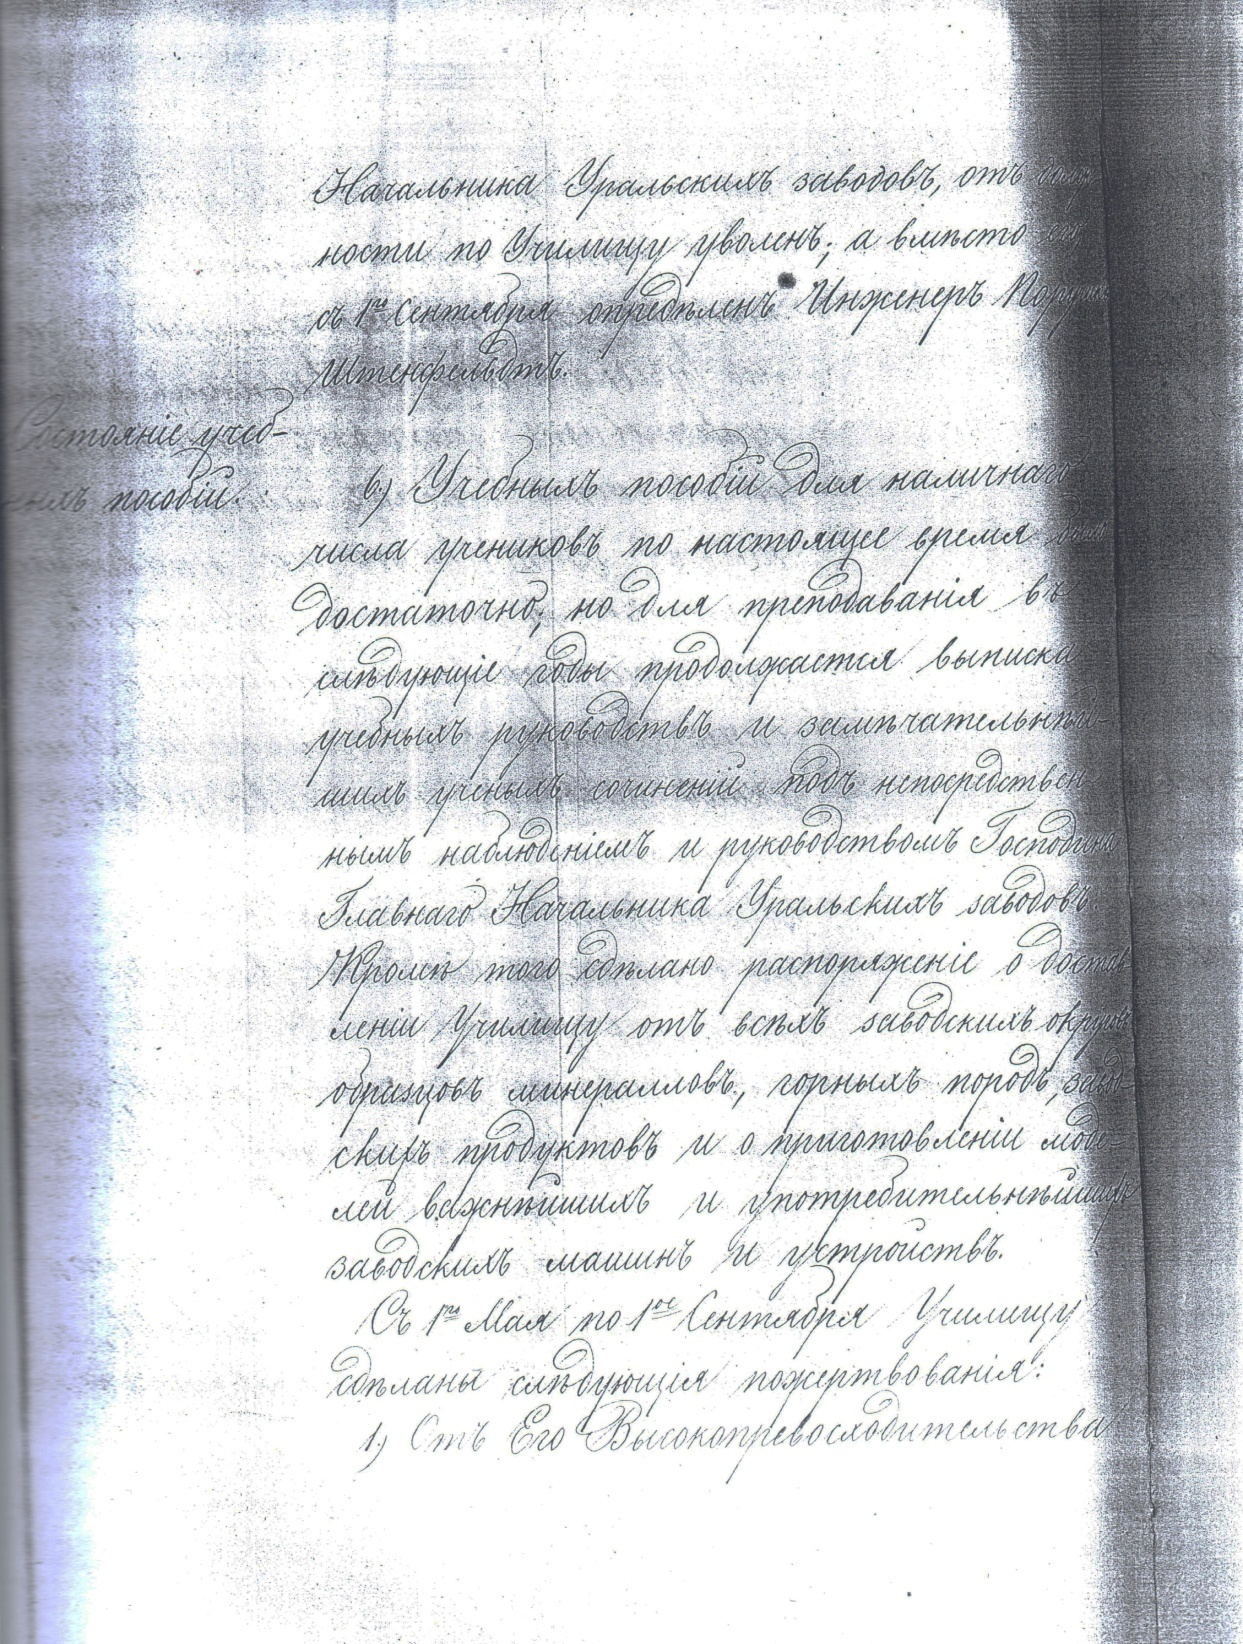 Начальника Уральскихъ заводовъ, отъ долж-
ности по Училищу уволенъ; а вмѣсто его
съ 1го Сентября опредѣленъ Инженеръ
Штенфельдтъ.
Состояніе учеб-
ныхъ пособій.
6) Учебныхъ пособій для наличнаго
числа учениковъ по настоящее время
достаточно; но для преподаванія въ
слѣдующіе годы продолжается выписка
учебныхъ руководствъ и замѣчательнѣй-
шихъ ученыхъ сочиненій подъ непосредствен-
нымъ наблюденіемъ и руководствомъ Господина
Главнаго Начальника Уральскихъ заводовъ.
Кромѣ того сдѣлано распоряженіе о достав
леніи Училищу отъ всѣхъ заводскихъ округовъ
образцовъ минералловъ, горныхъ породъ, завод-
скихъ продуктовъ и о приготовленіи моде-
лей важнѣйшихъ и употребительнѣйшихъ
заводскихъ машинъ и устройствъ.
Съ 1го Мая по 1ое Сентября Училищу
сдѣланы слѣдующія пожертвованія:
1) Отъ Его Высокопревосходительства